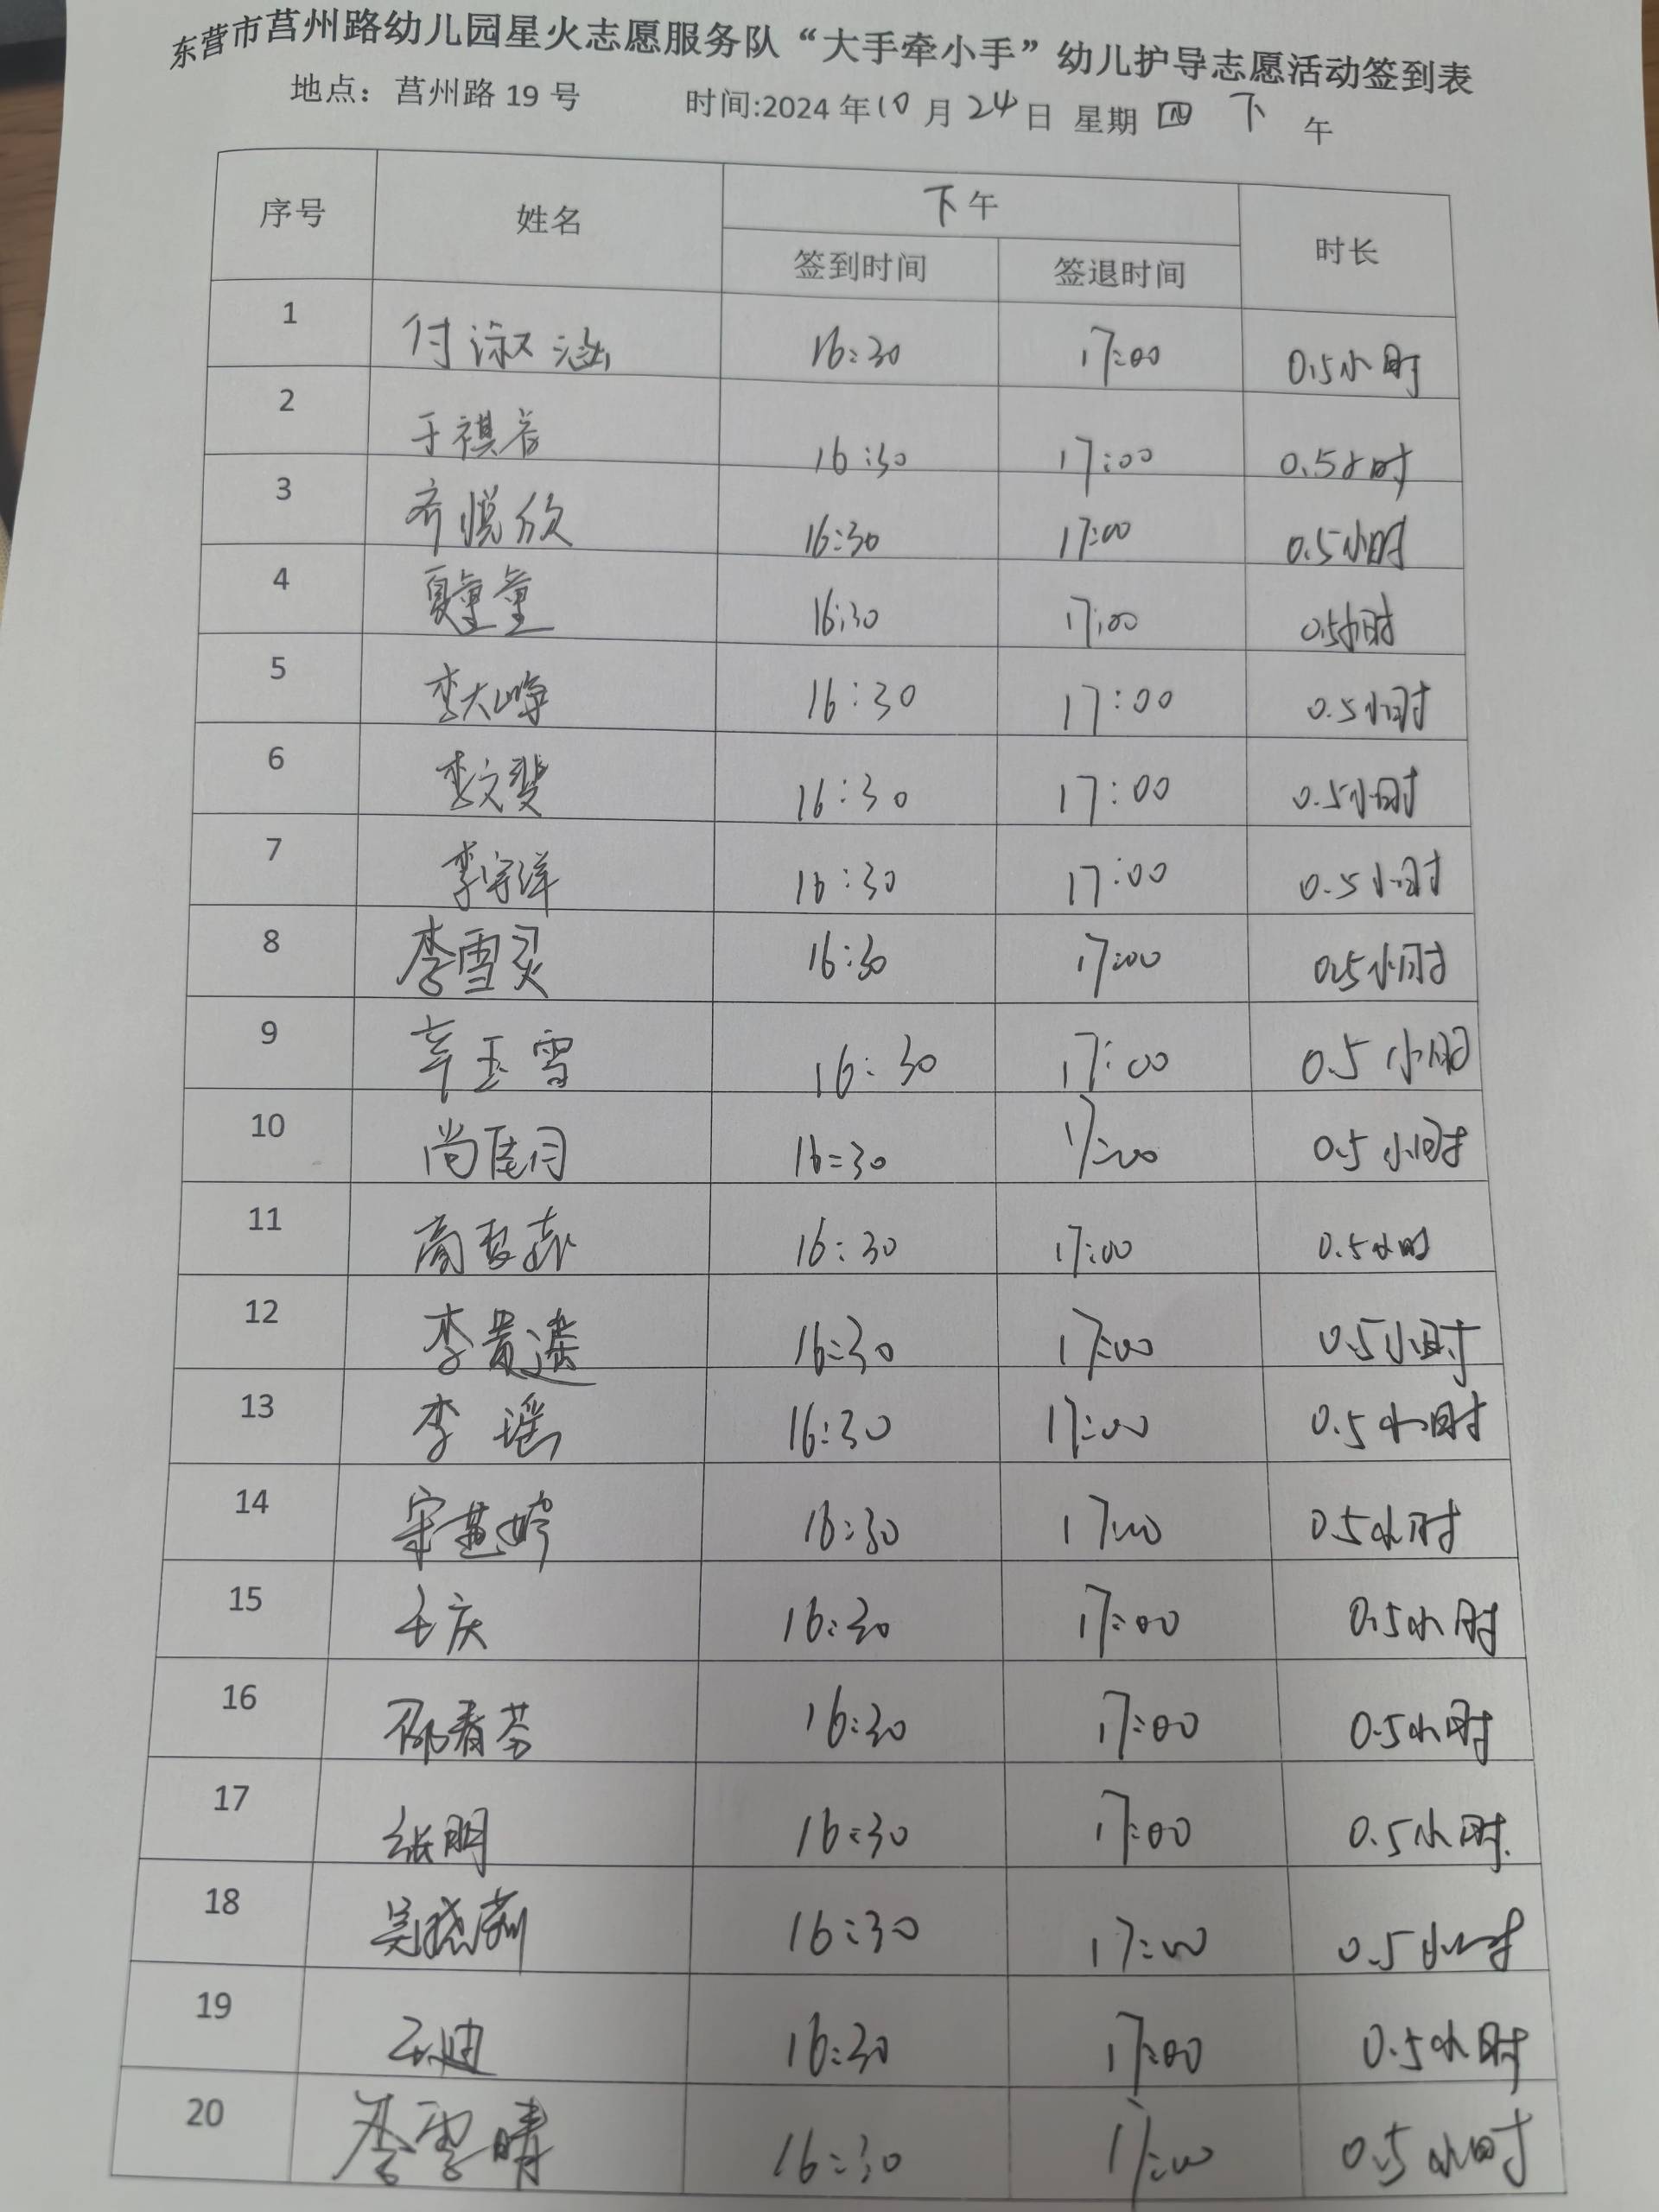 东营市莒州路幼儿园星火志愿服务队“大手牵小手”幼儿护导志愿活动签到表
地点：莒州路 19 号 时间:2024 年 10 月 24 日 星期 四 下 午
序号 姓名 下午 时长
签到时间 签退时间
1 付淑涵 16:30 17:00 0.5小时
2 于祺 16:30 17:00 0.5小时
3 齐悦欣 16:30 17:00 0.5小时
4 夏童童 16:30 17:00 0.5小时
5 李大峥 16:30 17:00 0.5小时
6 李文斐 16:30 17:00 0.5小时
7 李宇洋 16:30 17:00 0.5小时
8 李雪灵 16:30 17:00 0.5小时
9 辛玉雪 16:30 17:00 0.5小时
10 尚佳月 16:30 17:00 0.5小时
11 16:30 17:00 0.5小时
12 李 16:30 17:00 0.5小时
13 李瑶 16:30 17:00 0.5小时
14 宋慧婷 16:30 17:00 0.5小时
15 王庆 16:30 17:00 0.5小时
16 邵春芬 16:30 17:00 0.5小时
17 张明 16:30 17:00 0.5小时
18 吴晓 16:30 17:00 0.5小时
19 王迪 16:30 17:00 0.5小时
20 李雪晴 16:30 17:00 0.5小时